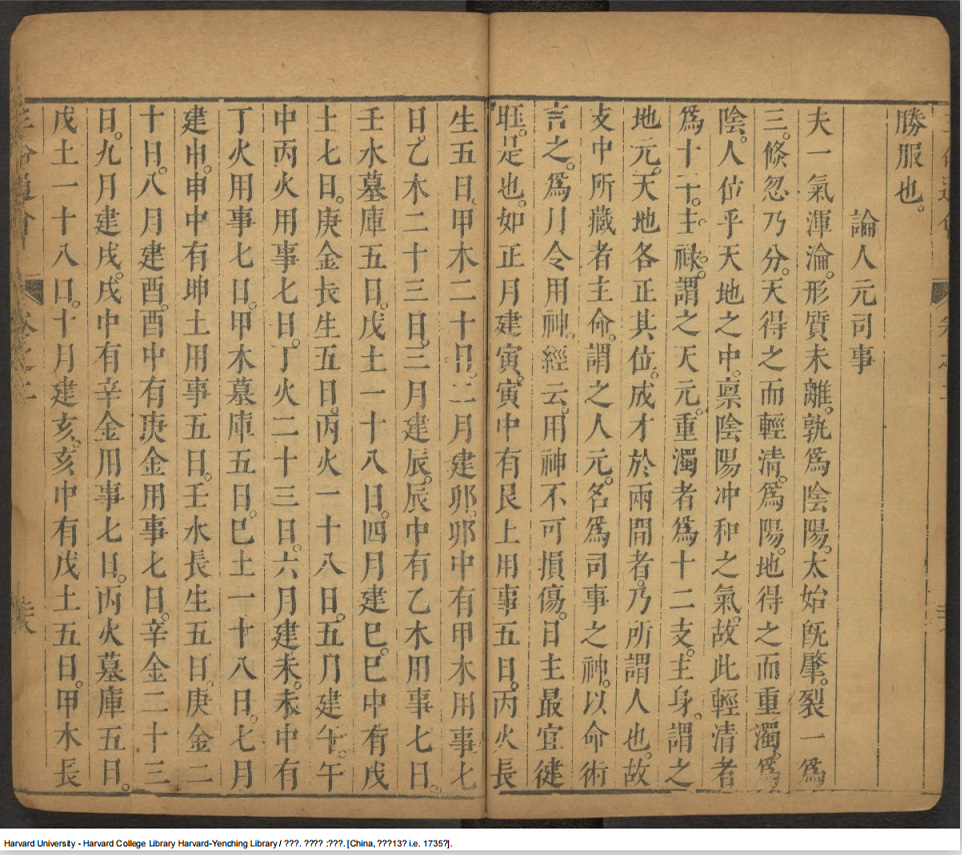 勝服也。
論人元司事
夫一氣渾淪。形質未離。孰爲陰陽。太始旣肇。裂一爲
三。倐忽乃分。天得之而輕清。爲陽。地得之而重濁。爲
陰。人位乎天地之中。稟陰陽冲和之氣。故此輕清者
爲十干。主祿。謂之天元。重濁者爲十二支。主身。謂之
地元。天地各正其位。成才於兩間者。乃所謂人也。故
支中所藏者主命。謂之人元。名爲司事之神。以命術
言之。爲月令用神。經云。用神不可損傷。日主最宜健
旺。是也。如正月建寅。寅中有艮土用事五日。丙火長
生五日。甲木二十日。二月建卯。卯中有甲木用事七
日。乙木二十三日。三月建辰。辰中有乙木用事七日。
壬水墓庫五日。戊土一十八日。四月建巳。巳中有戊
土七日。庚金長生五日。丙火一十八日。五月建午。午
中丙火用事七日。丁火二十三日。六月建未。未中有
丁火用事七日。甲木墓庫五日。巳土一十八日。七月
建申。申中有坤土用事五日。壬水長生五日。庚金二
十日。八月建酉。酉中有庚金用事七日。辛金二十三
日。九月建戌。戌中有辛金用事七日。丙火墓庫五日。
戊土一十八日。十月建亥。亥中有戊土五日。甲木長
三命通會
卷之二
Harvard University - Harvard College Library Harvard-Yenching Library / ???. ???? :???. [China, ???13? i.e. 1735?].